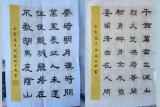 秦時明月漢時關
萬里長征人未還
但使龍城飛將在
不教胡馬度陰山
千錘萬鑿出深山
烈火焚燒若等閒
粉骨碎身渾不怕
要留清白在人間